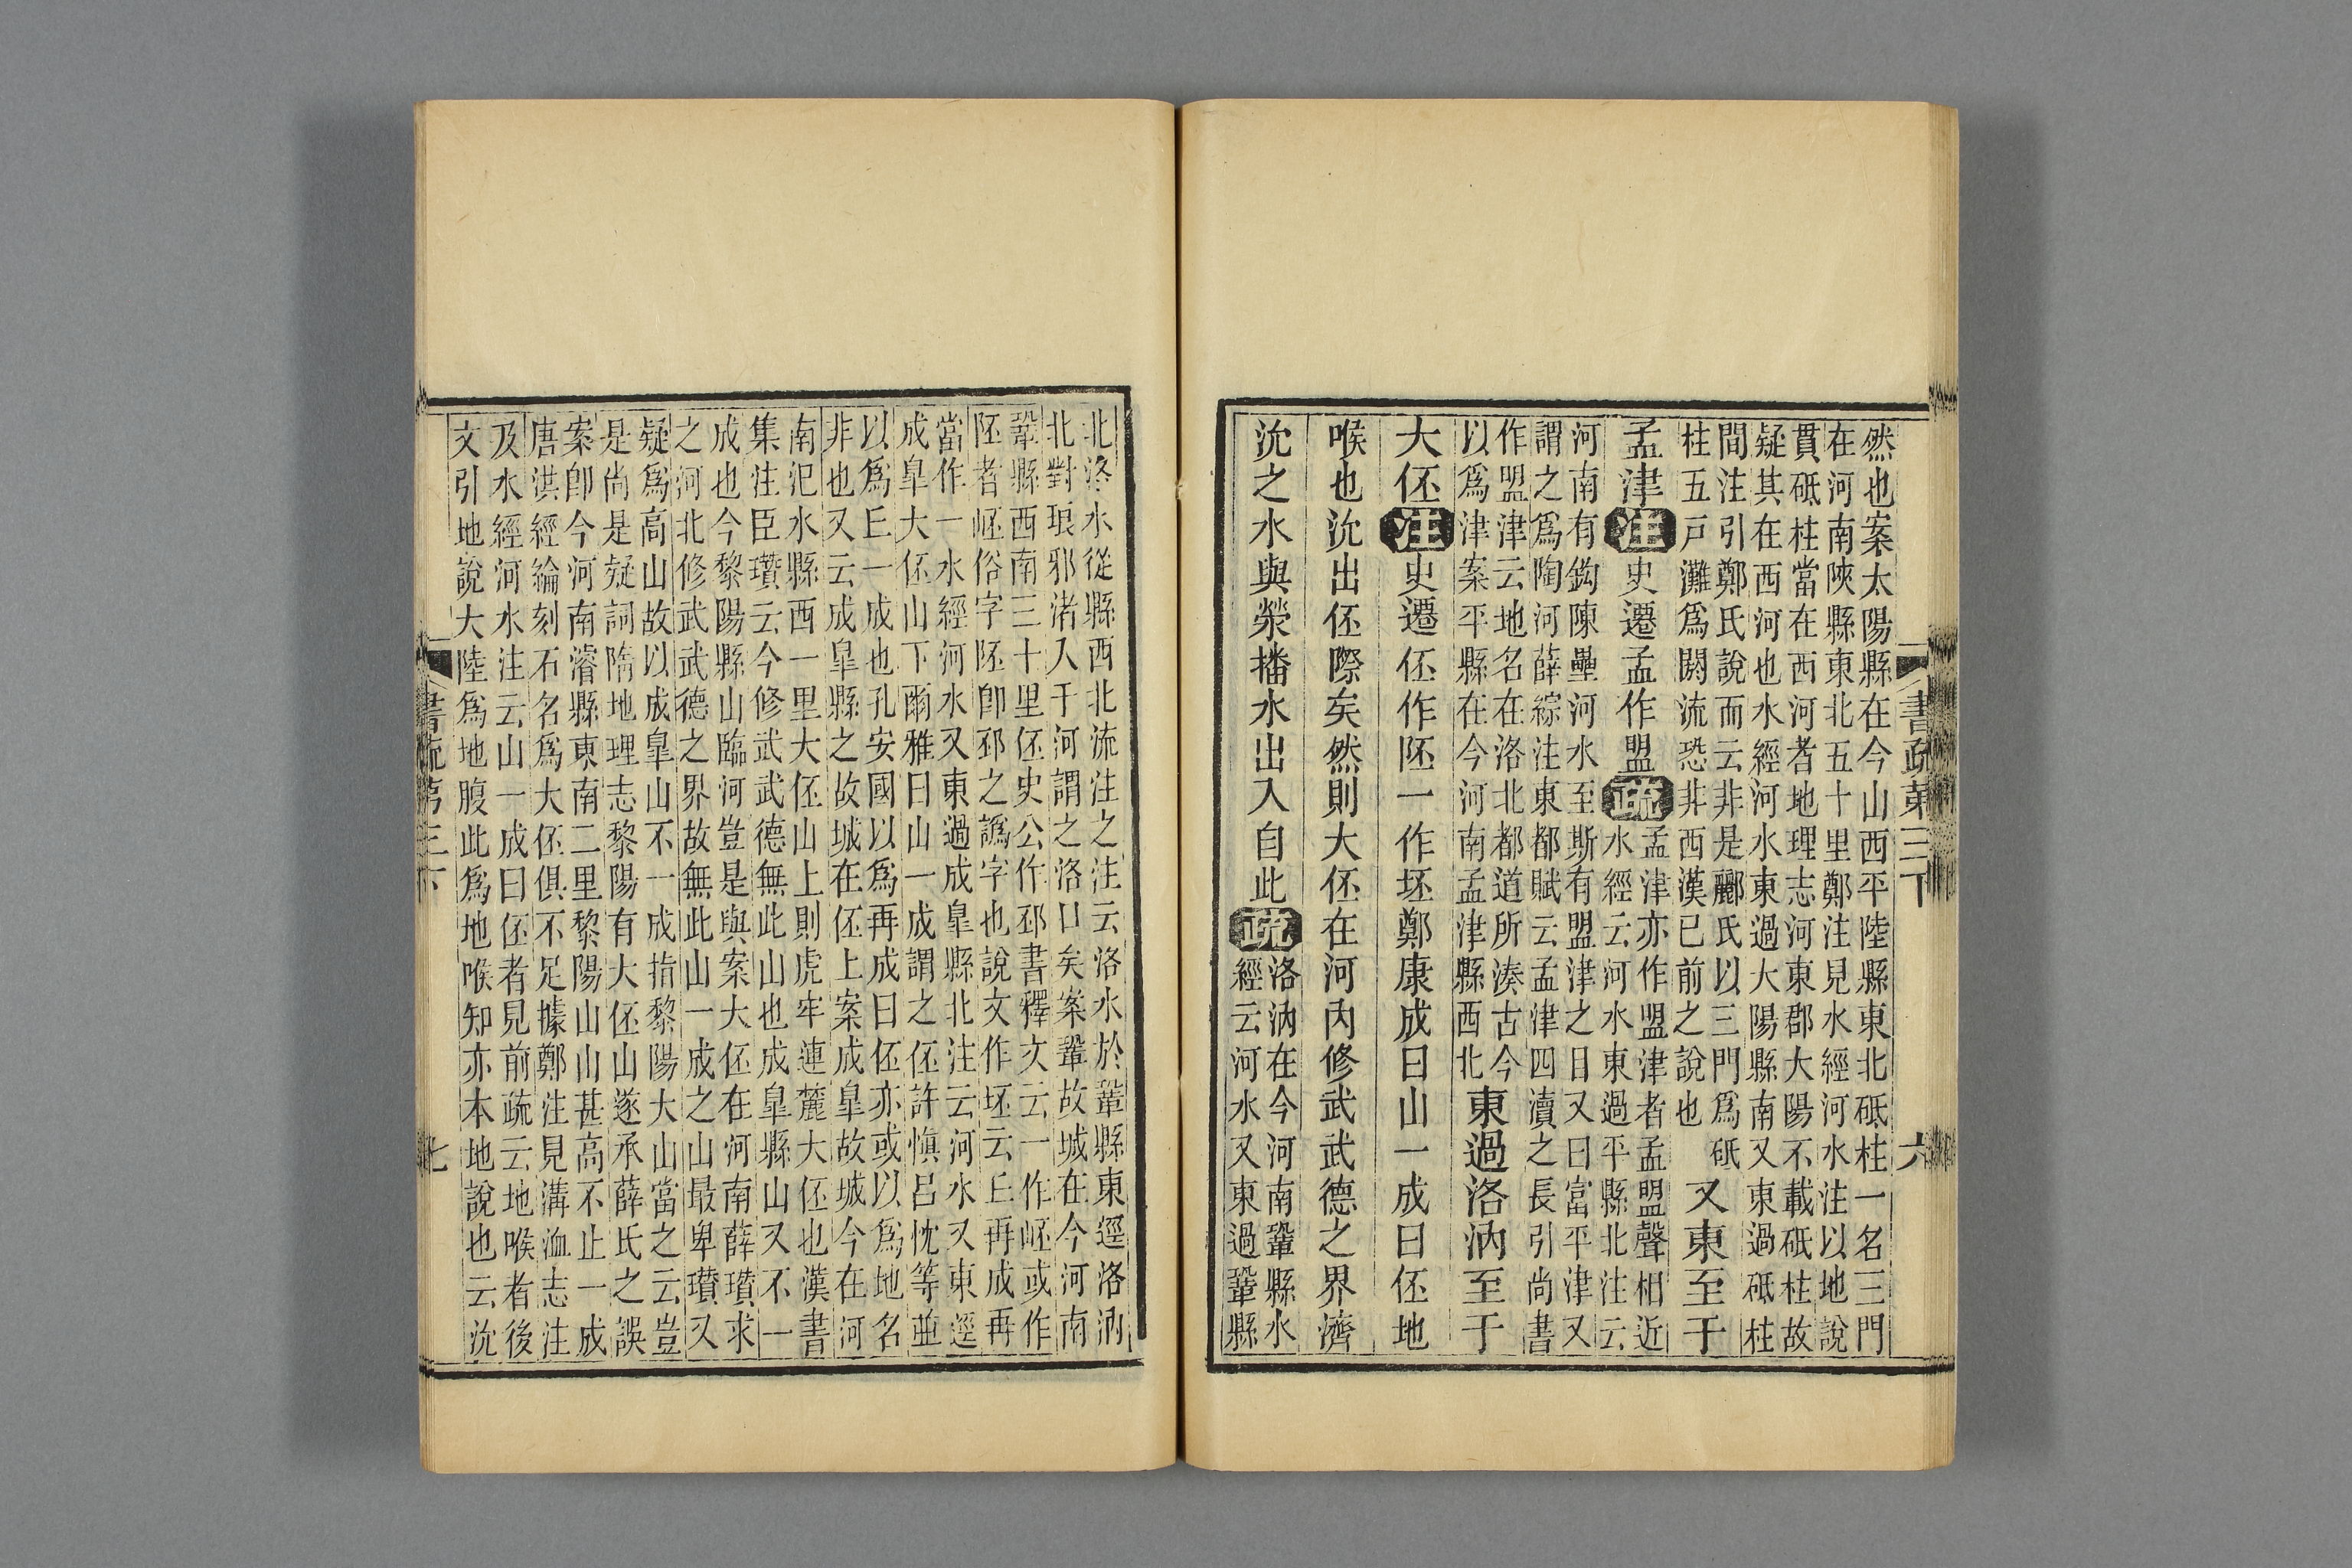 書疏第三下　六
然也案太陽縣在今山西平陸縣東北砥柱一名三門
在河南陝縣東北五十里鄭注見水經河水注以地說
貫砥柱當在西河者地理志河東郡大陽不載砥柱故
疑其在西河也水經河水東過大陽縣南又東過砥柱
間注引鄭氏說而云非是酈氏以三門爲砥
柱五戸灘爲閼流恐非西漢已前之說也
又東至于
孟津注史遷孟作盟疏
孟津亦作盟津者孟盟聲相近
水經云河水東過平縣北注云
河南有鈎陳壘河水至斯有盟津之目又曰富平津又
謂之爲陶河薛綜注東都賦云孟津四瀆之長引尚書
作盟津云地名在洛北都道所湊古今
以爲津案平縣在今河南孟津縣西北
東過洛汭至于
大伾注史遷伾作阫一作坯鄭康成曰山一成曰伾地
喉也沇出伾際矣然則大伾在河內修武武德之界濟
沇之水與滎播水出入自此疏
洛汭在今河南鞏縣水
經云河水又東過鞏縣
北洛水從縣西北流注之注云洛水於鞏縣東逕洛汭
北對琅邪渚入于河謂之洛口矣案鞏故城在今河南
鞏縣西南三十里伾史公作邳書釋文云一作岯或作
阫者岯俗字阫卽邳之譌字也說文作坯云丘再成再
當作一水經河水又東過成皐縣北注云河水又東逕
成皐大伾山下爾雅曰山一成謂之伾許愼呂忱等並
以爲丘一成也孔安國以爲再成曰伾亦或以爲地名
非也又云成皐縣之故城在伾上案成皐故城今在河
南汜水縣西一里大伾山上則虎牢連麓大伾也漢書
集注臣瓚云今修武武德無此山也成皐縣山又不一
成也今黎陽縣山臨河豈是與案大伾在河南薛瓚求
之河北修武武德之界故無此山一成之山最卑瓚又
疑爲高山故以成皐山不一成指黎陽大山當之云豈
是尚是疑詞隋地理志黎陽有大伾山遂承薛氏之誤
案卽今河南濬縣東南二里黎陽山山甚高不止一成
唐洪經綸刻石名爲大伾俱不足據鄭注見溝洫志注
及水經河水注云山一成曰伾者見前疏云地喉者後
文引地說大陸爲地腹此爲地喉知亦本地說也云沇
書疏第三下　七